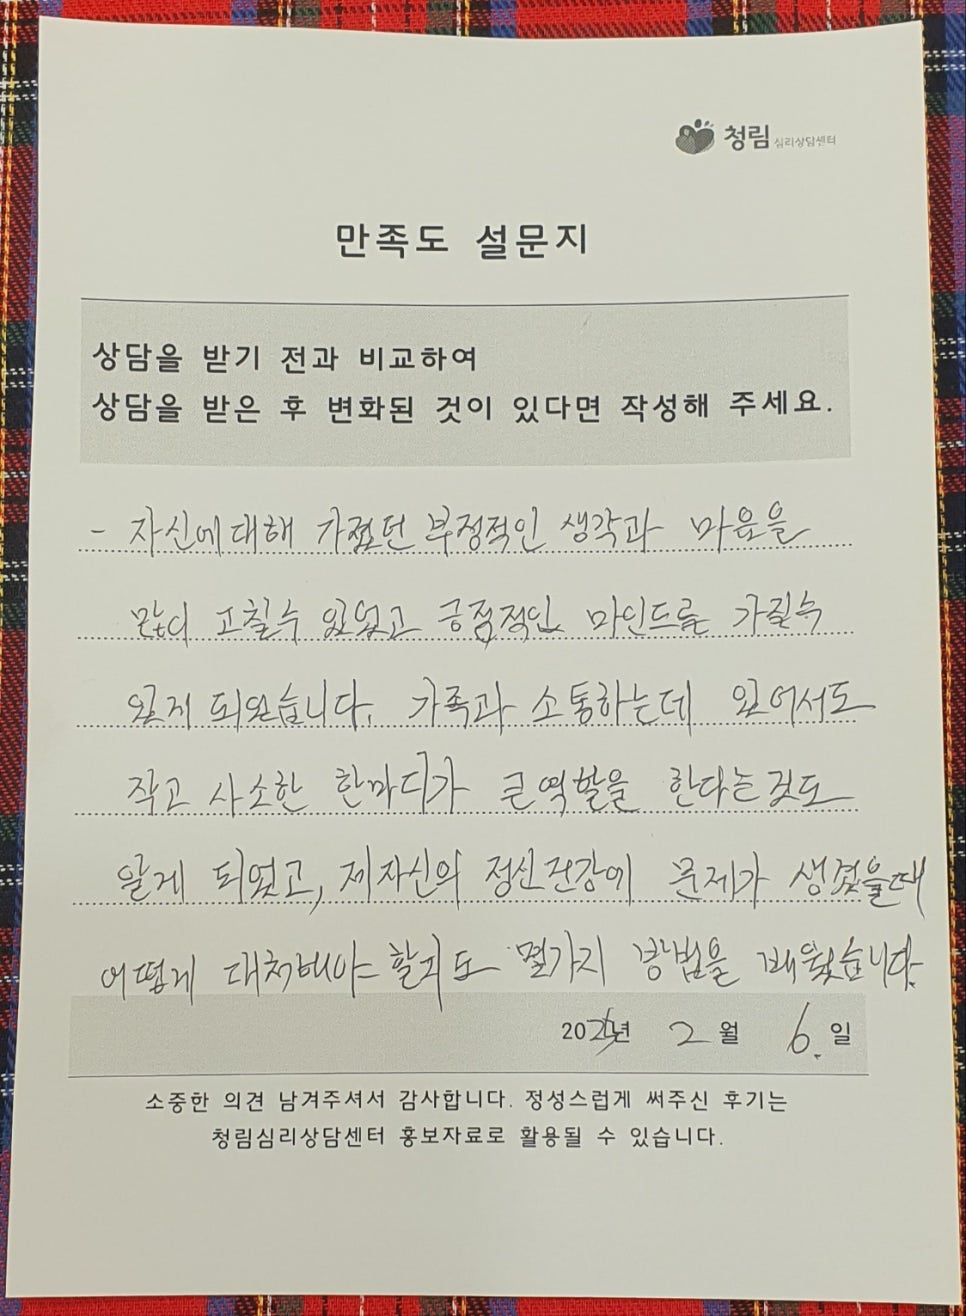 청림 심리상담센터
만족도 설문지
상담을 받기 전과 비교하여
상담을 받은 후 변화된 것이 있다면 작성해 주세요.
- 자신에대해 가졌던 부정적인 생각과 마음을
많이 고칠수 있었고 긍정적인 마인드를 가질수
있게 되었습니다. 가족과 소통하는데 있어서도
작고 사소한 한마디가 큰역할을 한다는것도
알게 되었고, 제자신의 정신건강에 문제가 생겼을때
어떻게 대처해야 할지도 몇가지 방법을 배웠습니다.
년 2 월 6. 일
소중한 의견 남겨주셔서 감사합니다. 정성스럽게 써주신 후기는
청림심리상담센터 홍보자료로 활용될 수 있습니다.